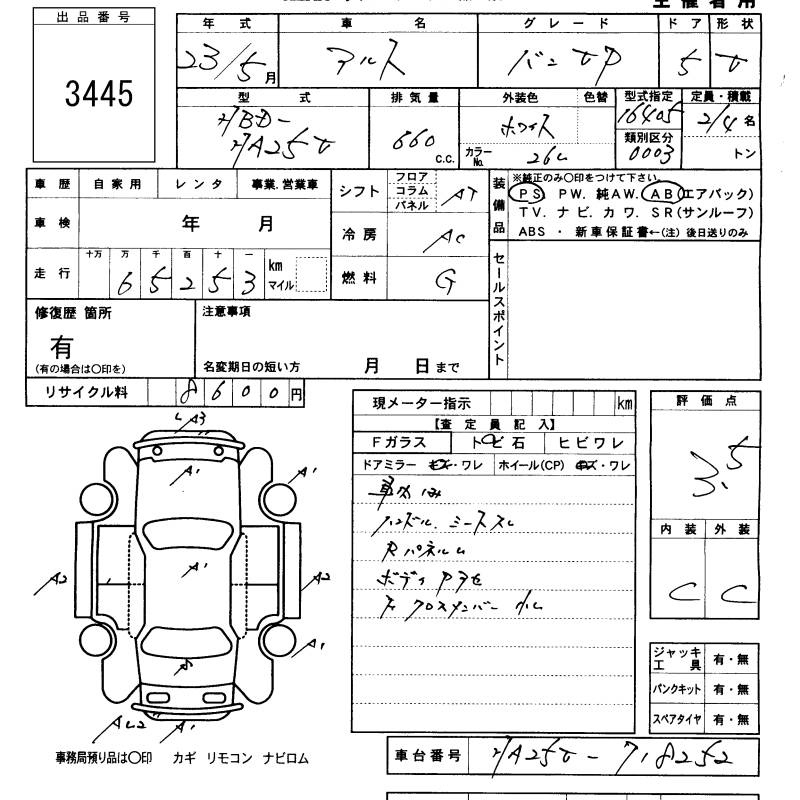 出品番号
3445
年式
23/5月
車名
アルト
グレード
バン VP
ドア
5
形状
V
型式
HBD-
HA25V
排気量
660
C.C.
外装色
ホワイト
色替
カラーNo.
26U
型式指定
16405
類別区分
0003
定員・積載
2/4名
トン
車歴 自家用 レンタ 事業.営業車
車検 年 月
走行 十万 万 千 百 十 一
65253 km
マイル
シフト
フロア
コラム
パネル
AT
冷房
AC
燃料
G
装備品
※純正のみ〇印をつけて下さい。
PS. PW. 純AW. AB(エアバック)
TV. ナビ. カワ. SR(サンルーフ)
ABS ・ 新車保証書←(注) 後日送りのみ
セールスポイント
修復歴 箇所
有
(有の場合は〇印を)
注意事項
名変期日の短い方 月 日まで
リサイクル料 8600円
現メーター指示 km
【査定員記入】
Fガラス トビ石 ヒビワレ
ドアミラー キズ・ワレ ホイール(CP) キズ・ワレ
ハンドル. シートスレ
Rパネル
F クロスメンバー
評価点
3.5
内装 外装
C C
ジャッキ
工具
有・無
パンクキット 有・無
スペアタイヤ 有・無
A3
A1
A1
A2
A1
A2
A1
A1
事務局預り品は〇印 カギ リモコン ナビロム
車台番号 HA25V-718252